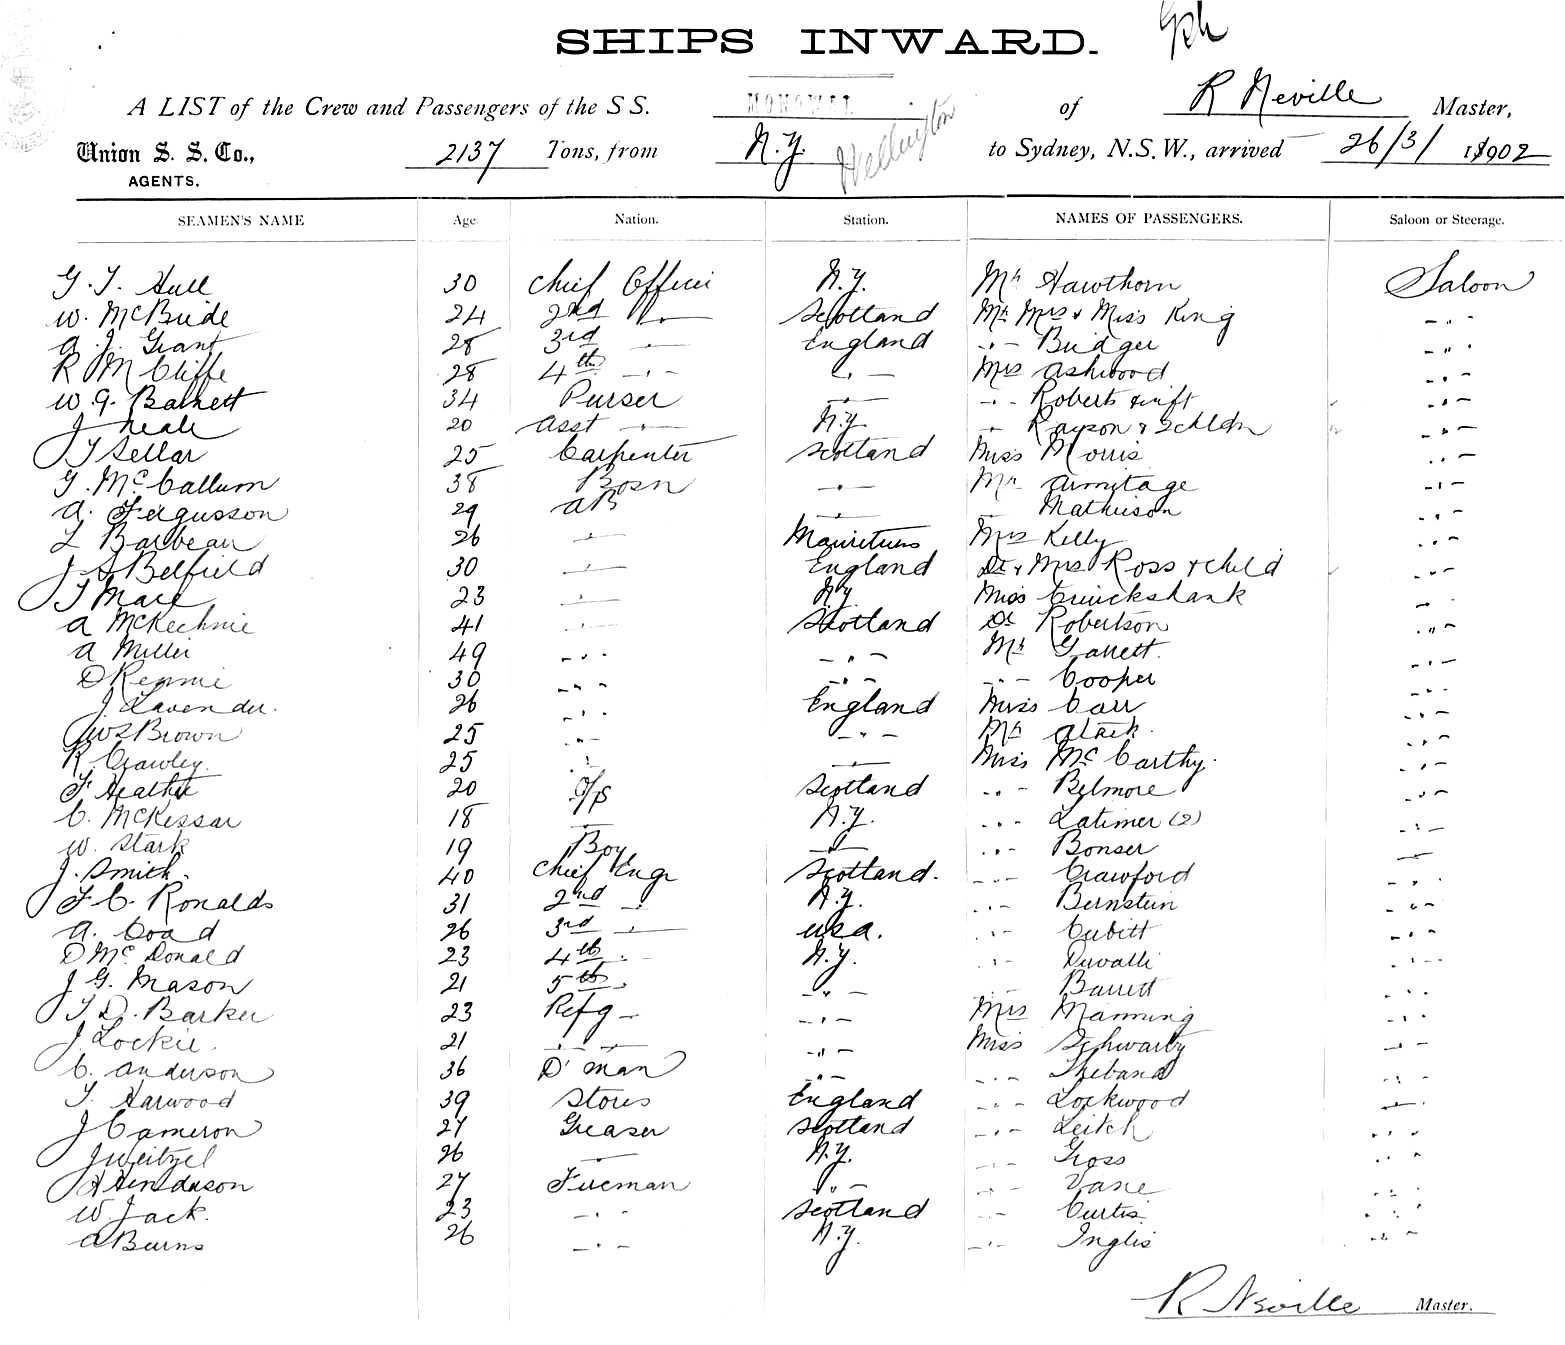 SHIPS INWARD.
A LIST of the Crew and Passengers of the S S. MONOWAI of R Neville Master,
Union S. S. Co., 2137 Tons, from N.Z. Wellington to Sydney, N.S.W., arrived 26/3/ 1902
AGENTS.
SEAMEN'S NAME Age. Nation. Station. NAMES OF PASSENGERS. Saloon or Steerage.
G. T. Hull 30 Chief Officer N.Z. Mr Hawthorn Saloon
W. McBride 24 2nd " Scotland Mr Mrs & Miss King " "
A. J. Grant 28 3rd " England " Bridger " "
R McCliffe 28 4th " " Mrs Ashwood " "
W. G. Barnett 34 Purser " " Roberts & inft " "
J Neale 20 Asst " N.Z. " Rayson & 2 chldn " "
T Sellar 25 Carpenter Scotland Miss Morris " "
G. McCallum 38 Bosn " Mr Armitage " "
A. Fergusson 29 AB " " Mathieson " "
L Barbeau 26 " Mauritius Mrs Kelly " "
J S Belfield 30 " England Dr & Mrs Ross & child " "
T Mace 23 " N.Z. Miss Cruickshank " "
A McKechnie 41 " Scotland Dr Robertson " "
A Miller 49 " " Mr Garrett. " "
D Rennie 30 " " " Cooper " "
J. Lavender. 26 " England Miss Carr " "
W S Brown 25 " " Mr Black. " "
R. Crawley. 25 " " Miss McCarthy. " "
F Heathie 20 O/S Scotland " Belmore " "
C. McKessar 18 " N.Z. " Latimer (2) " "
W. Stark 19 Boy " " Bonser " "
J. Smith. 40 Chief Engr Scotland. " Crawford " "
F C. Ronalds 31 2nd " N.Z. " Bernstein " "
A. Coad 26 3rd " U.S.A. " Cubitt " "
D McDonald 23 4th " N.Z. " Duvalli " "
J G. Mason 21 5th " " " Barrett " "
T. D. Barker 23 Refg " Mrs Manning " "
J. Lockie. 21 " " Miss Schwartz " "
C. Anderson 36 D'man " " Theband " "
T. Harwood 39 Stores England " Lockwood " "
J Cameron 27 Greaser Scotland " Leitch " "
J Weitzel 26 " N.Z. " Gross " "
H Henderson 27 Fireman " " Vane " "
W. Jack. 23 " Scotland " Curtis " "
A Burns 26 " N.Z. " Inglis " "
R Neville Master.